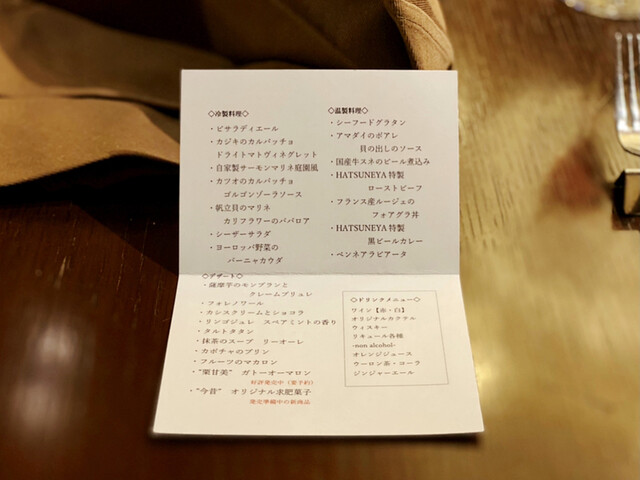 ◇冷製料理◇
・ピサラディエール
・カジキのカルパッチョ
ドライトマトヴィネグレット
・自家製サーモンマリネ庭園風
・カツオのカルパッチョ
ゴルゴンゾーラソース
・帆立貝のマリネ
カリフラワーのババロア
・シーザーサラダ
・ヨーロッパ野菜の
バーニャカウダ
◇温製料理◇
・シーフードグラタン
・アマダイのポアレ
貝の出しのソース
・国産牛スネのビール煮込み
・HATSUNEYA 特製
ローストビーフ
・フランス産ルージュの
フォアグラ丼
・HATSUNEYA 特製
黒ビールカレー
・ペンネアラビアータ
◇デザート◇
・薩摩芋のモンブランと
クレームブリュレ
・フォレノワール
・カシスクリームとショコラ
・リンゴジュレ スペアミントの香り
・タルトタタン
・抹茶のスープ リーオーレ
・カボチャのプリン
・フルーツのマカロン
・"栗甘美" ガトーオーマロン
好評発売中(要予約)
・"今昔" オリジナル求肥菓子
発売準備中の新商品
◇ドリンクメニュー◇
ワイン【赤・白】
オリジナルカクテル
ウィスキー
リキュール各種
-non alcohol-
オレンジジュース
ウーロン茶・コーラ
ジンジャーエール